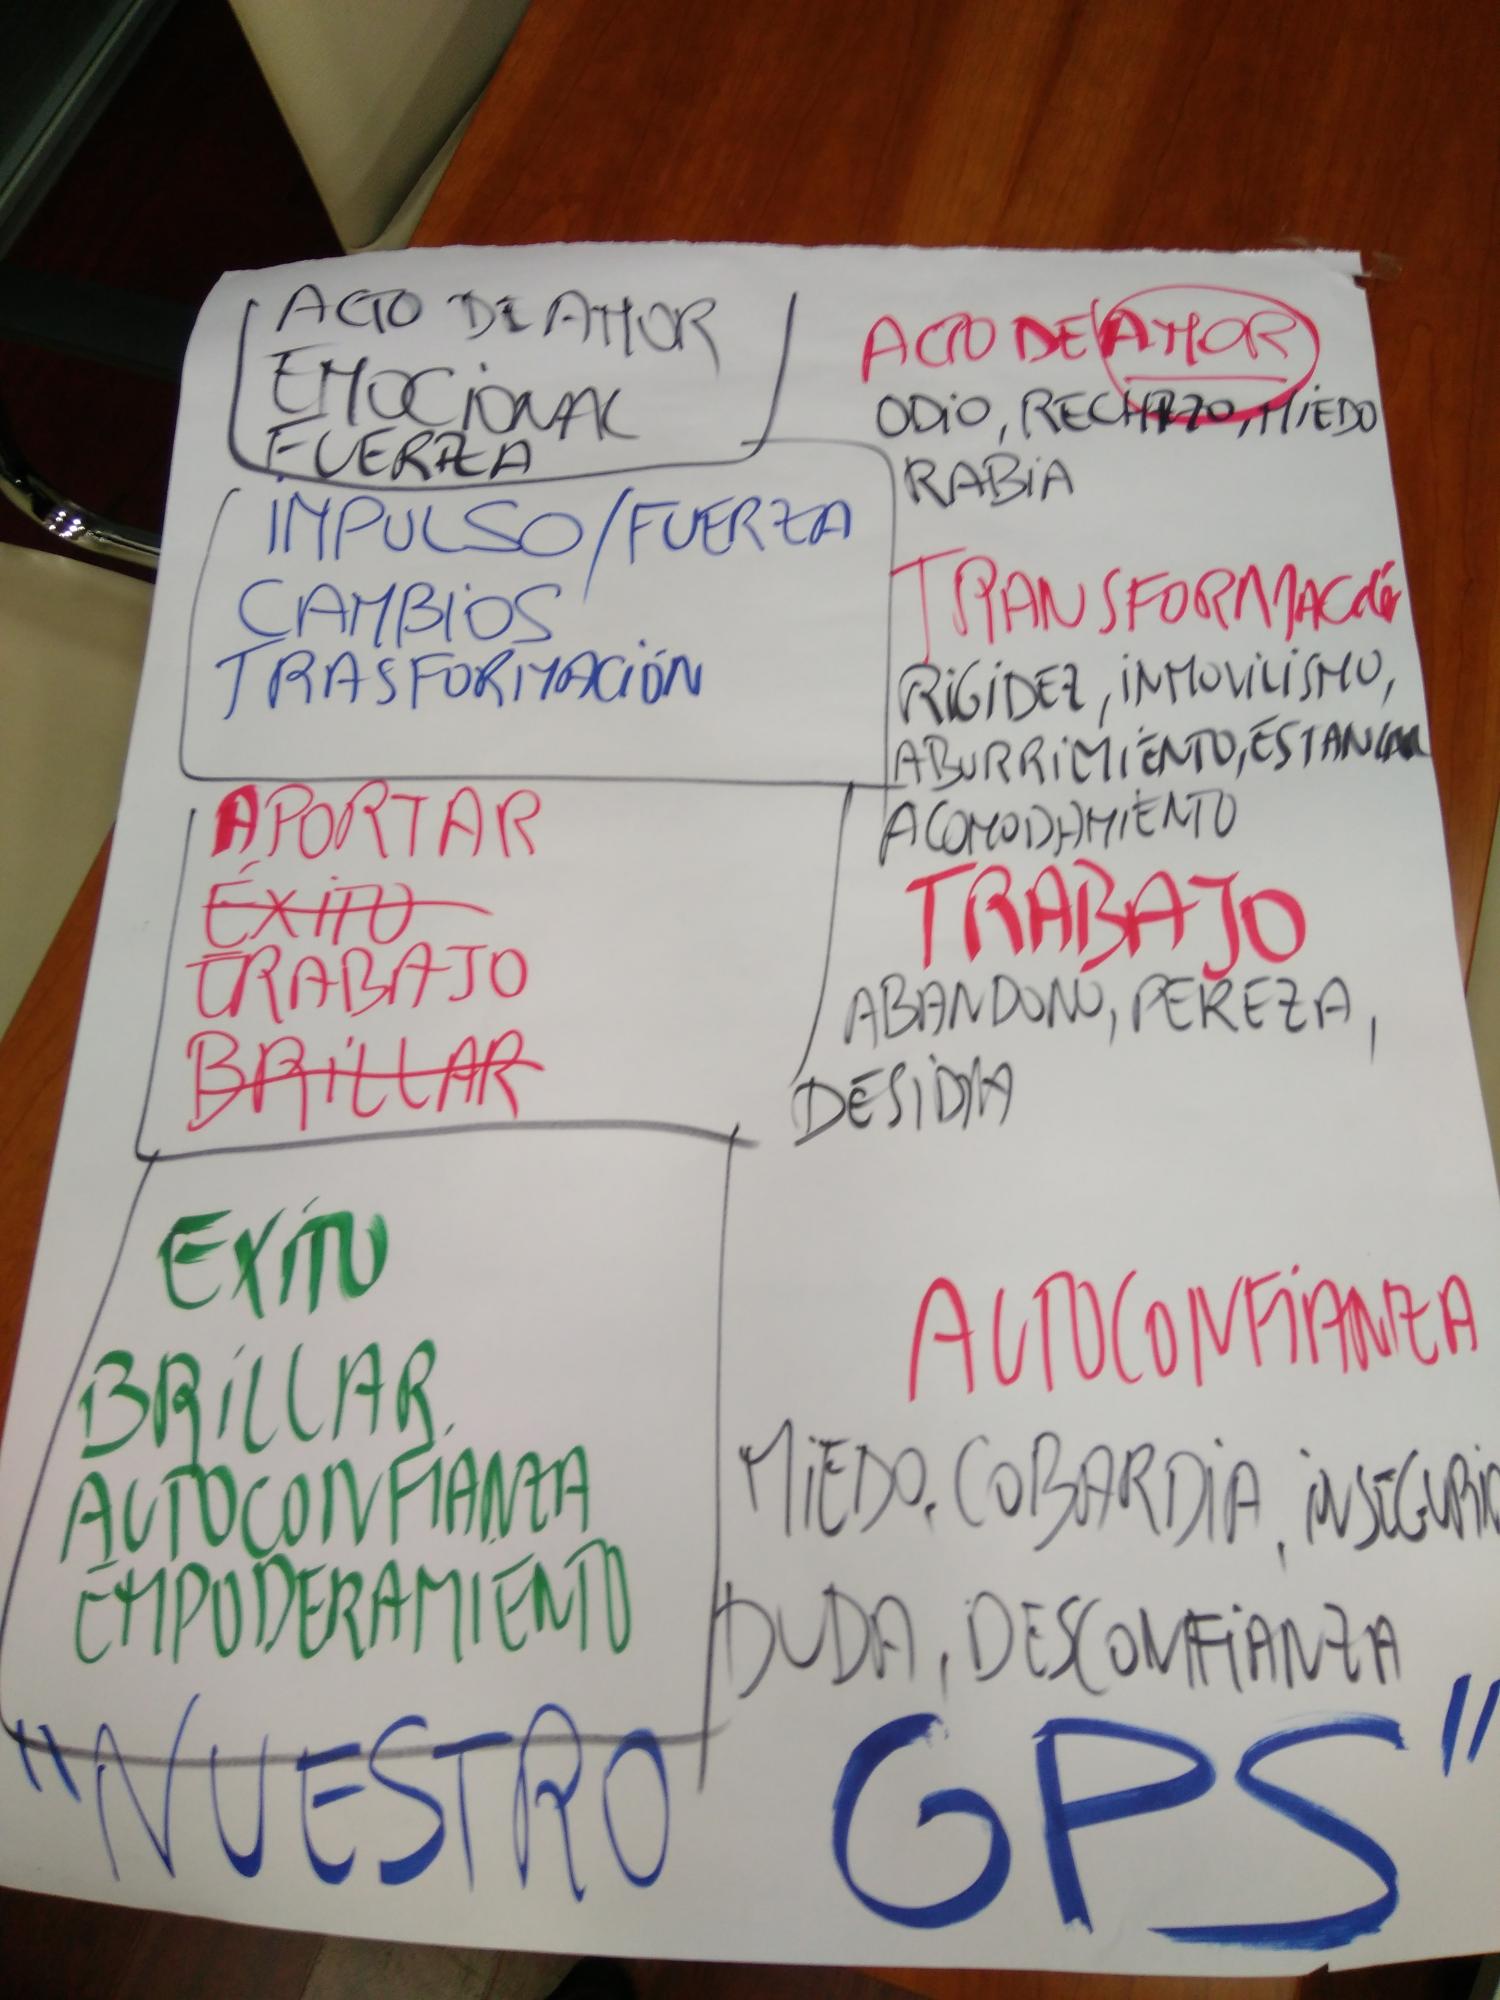 ACTO DE AMOR
EMOCIONAL
FUERZA
IMPULSO/FUERZA
CAMBIOS
TRASFORMACIÓN
APORTAR
ÉXITO
TRABAJO
BRILLAR
EXITO
BRILLAR.
AUTOCONFIANZA
EMPODERAMIENTO
ACTO DE AMOR
ODIO, RECHAZO, MIEDO
RABIA
TRANSFORMACIÓ
RIGIDEZ, INMOVILISMO,
ABURRIMIENTO, ESTANCAR
ACOMODAMIENTO
TRABAJO
ABANDONO, PEREZA,
DESIDIA
AUTOCONFIANZA
MIEDO, COBARDIA, INSEGURID
DUDA, DESCONFIANZA
"NUESTRO GPS"